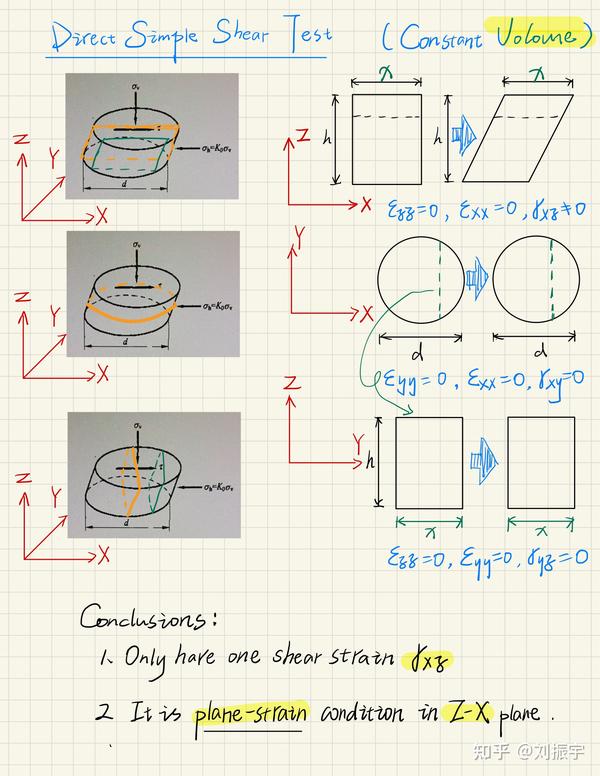 Direct Simple Shear Test (Constant Volume)
σᵥ
σₕ=K₀σᵥ
d
Z
Y
X
x
x
h
h
Z
X
εzz=0, εxx=0, γxz≠0
σᵥ
σₕ=K₀σᵥ
d
Z
Y
X
Y
X
d
d
εyy=0, εxx=0, γxy=0
σᵥ
τ
σₕ=K₀σᵥ
d
Z
Y
X
Z
Y
h
x
x
εzz=0, εyy=0, γyz=0
Conclusions:
1. Only have one shear strain γxz
2 It is plane-strain condition in Z-X plane.
知乎 @刘振宇